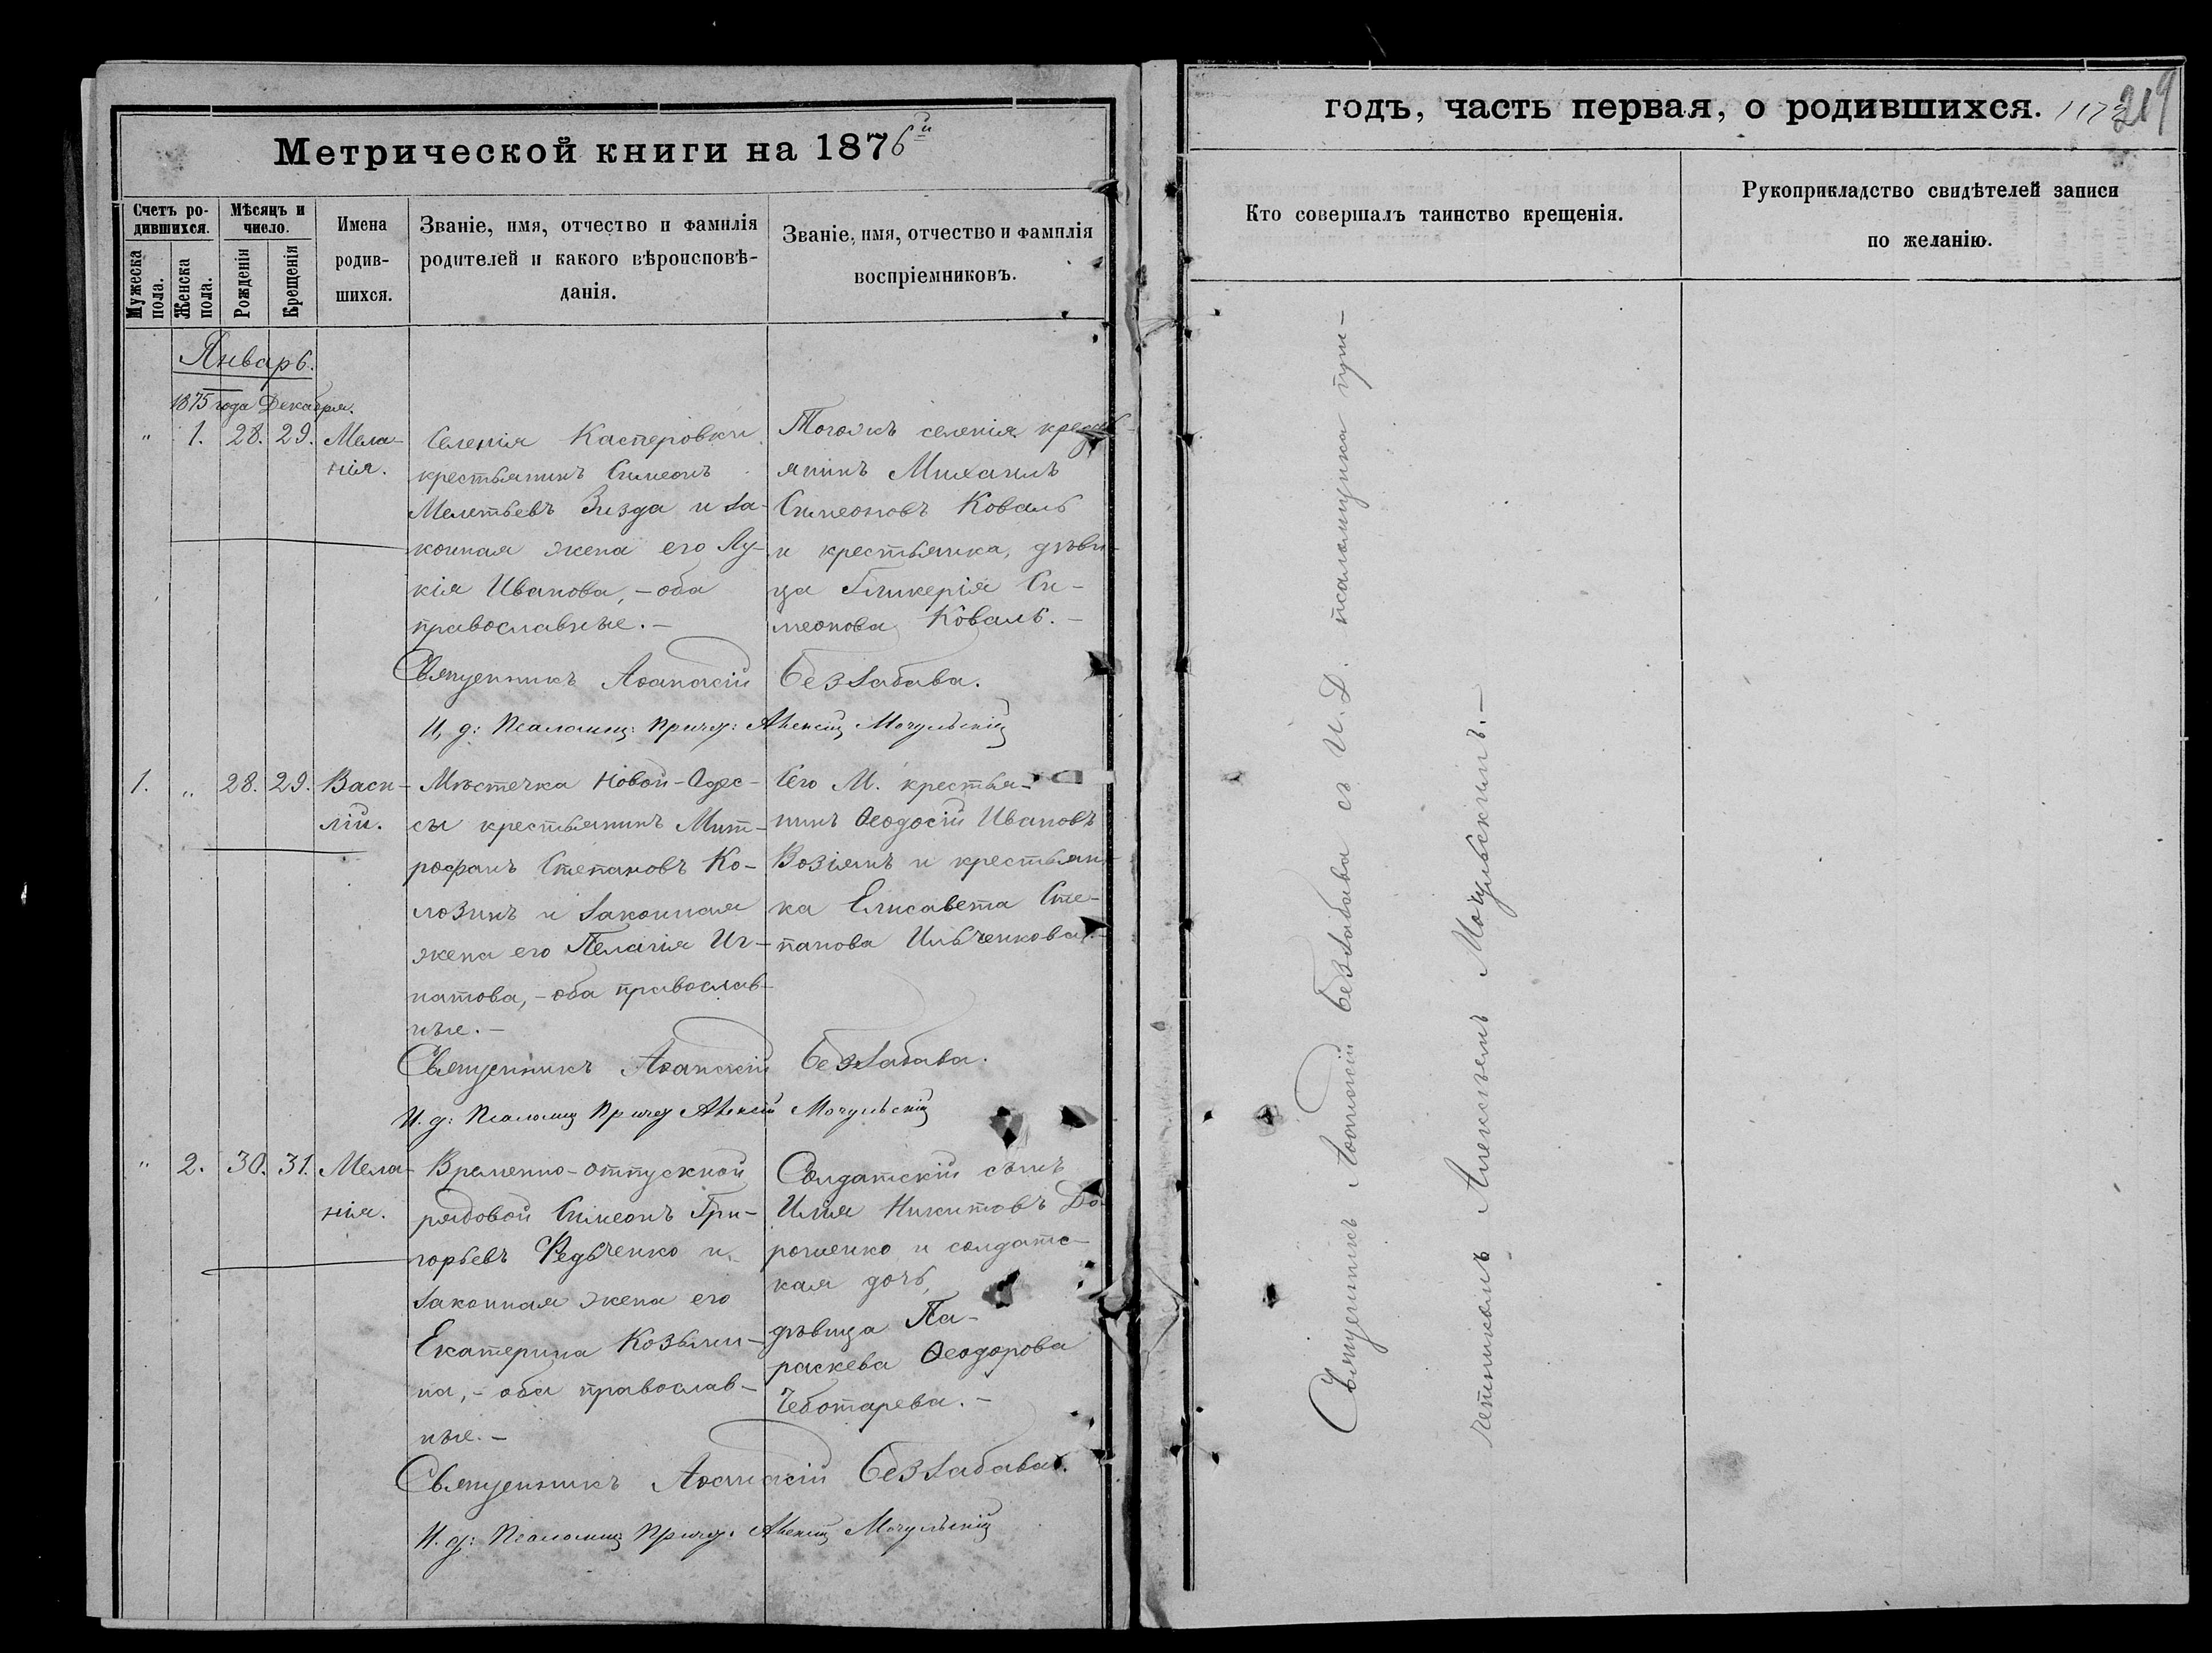 Метрической книги на 1876й
Счетъ ро-
дившихся.
Мѣсяцъ и
число.
Мужеска
пола.
Женска
пола.
Рожденія
Крещенія
Имена
родив-
шихся.
Званіе, имя, отчество и фамилія
родителей и какого вѣроисповѣ-
данія.
Званіе, имя, отчество и фамилія
воспріемниковъ.
Январь.
1875 года Декабря.
" 1. 28. 29.
Мела-
нія.
Селенія Касперовки
крестьянинъ Симеонъ
Мелетьевъ Зизда и за-
конная жена его Лу-
кія Иванова, - оба
православные. -
Тогожъ селенія крестья
янинъ Михаилъ
Симеоновъ Коваль
и крестьянка, дѣви-
ца Гликерія Си-
меонова Коваль. -
Священникъ Аѳанасій Беззабава.
И, д: Псаломщ: Причет: Алексій Мочульскій
1. " 28. 29.
Васи-
лій.
Мѣстечка Новой-Одес-
сы крестьянинъ Мит-
рофанъ Степановъ Ко-
лозинъ и законная
жена его Пелагія Иг-
натова, - оба православ-
ные. -
Сего М. крестья-
нинъ Ѳеодосій Ивановъ
Возіянъ и крестьян-
ка Елисавета Сте-
панова Ильченкова. -
Священникъ Аѳанасій Беззабава.
И. д: Псаломщ Причет Алексій Мочульскій
" 2. 30. 31.
Мела-
нія.
Временно-отпускной
рядовой Симеонъ Гри-
горьевъ Федьченко и
законная жена его
Екатерина Козьми-
на, - оба православ-
ные. -
Солдатскій сынъ
Илія Никитовъ До-
рошенко и солдатс-
кая дочь,
дѣвица Па-
раскева Ѳеодорова
Чеботарева. -
Священникъ Аѳанасій Беззабава.
И. д: Псаломщ Причет: Алексій Мочульскій
годъ, часть первая, о родившихся.
219
Кто совершалъ таинство крещенія.
Рукоприкладство свидѣтелей записи
по желанію.
Священникъ Аѳанасій Беззабава съ И. Д. псаломщика при-
четникомъ Алексѣемъ Мочульскимъ. -